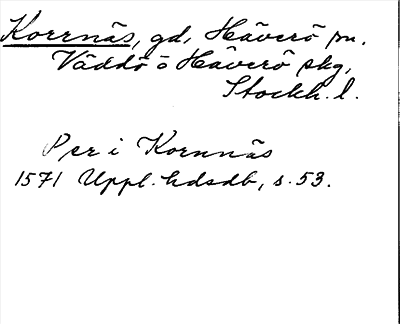 Korrnäs, gd, Häverö sn.
Väddö o Häverö skg,
Stockh. l.
Per i Kornnäs
1571 Uppl. hdsdb, s. 53.